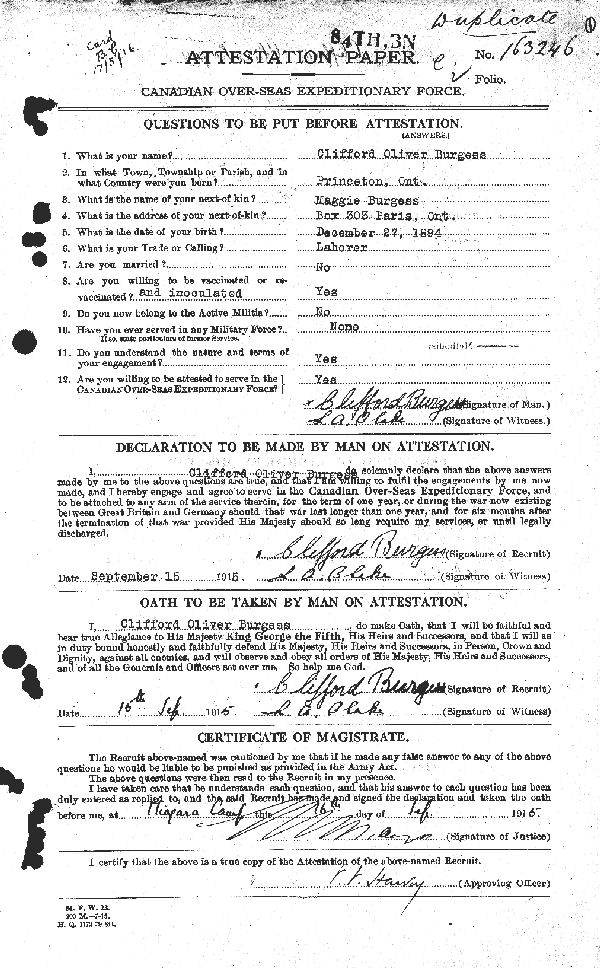 Duplicate
Card
84TH, 3N
ATTESTATION PAPER.
No. 163246
Folio.
CANADIAN OVER-SEAS EXPEDITIONARY FORCE.
QUESTIONS TO BE PUT BEFORE ATTESTATION.
(ANSWERS.)
1. What is your name? Clifford Oliver Burgess
2. In what Town, Township or Parish, and in
what Country were you born? Princeton, Ont.
3. What is the name of your next-of-kin? Maggie Burgess
4. What is the address of your next-of-kin? Box 303 Paris, Ont.
5. What is the date of your birth? December 27, 1894
6. What is your Trade or Calling? Laborer
7. Are you married? No
8. Are you willing to be vaccinated or re-
vaccinated? and inoculated Yes
9. Do you now belong to the Active Militia? No
10. Have you ever served in any Military Force? None
If so, state particulars of former Service.
11. Do you understand the nature and terms of
your engagement? Yes
12. Are you willing to be attested to serve in the Yes
CANADIAN OVER-SEAS EXPEDITIONARY FORCE?
x Clifford Burgess (Signature of Man.)
(Signature of Witness.)
DECLARATION TO BE MADE BY MAN ON ATTESTATION.
I, Clifford Oliver Burgess do solemnly declare that the above answers
made by me to the above questions are true, and that I am willing to fulfil the engagements by me now
made, and I hereby engage and agree to serve in the Canadian Over-Seas Expeditionary Force, and
to be attached to any arm of the service therein, for the term of one year, or during the war now existing
between Great Britain and Germany should that war last longer than one year, and for six months after
the termination of that war provided His Majesty should so long require my services, or until legally
discharged.
x Clifford Burgess (Signature of Recruit)
Date September 15 1915. (Signature of Witness)
OATH TO BE TAKEN BY MAN ON ATTESTATION.
I, Clifford Oliver Burgess, do make Oath, that I will be faithful and
bear true Allegiance to His Majesty King George the Fifth, His Heirs and Successors, and that I will as
in duty bound honestly and faithfully defend His Majesty, His Heirs and Successors, in Person, Crown and
Dignity, against all enemies, and will observe and obey all orders of His Majesty, His Heirs and Successors,
and of all the Generals and Officers set over me. So help me God.
x Clifford Burgess (Signature of Recruit)
Date 15th Sep 1915 (Signature of Witness)
CERTIFICATE OF MAGISTRATE.
The Recruit above-named was cautioned by me that if he made any false answer to any of the above
questions he would be liable to be punished as provided in the Army Act.
The above questions were then read to the Recruit in my presence.
I have taken care that he understands each question, and that his answer to each question has been
duly entered as replied to, and the said Recruit has made and signed the declaration and taken the oath
before me, at Niagara Camp this 16th day of Sep. 1915.
(Signature of Justice)
I certify that the above is a true copy of the Attestation of the above-named Recruit.
(Approving Officer)
M. F. W. 23.